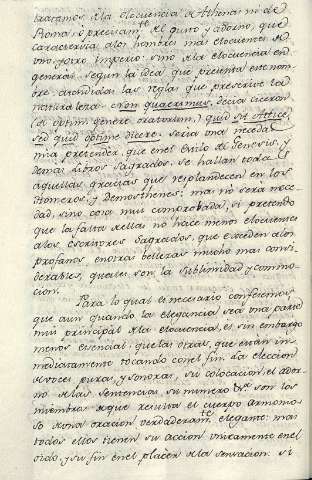 tratamos dela elocuencia de Athenas ni de
Roma, ò precisam.te del gusto y adorno, que
caracteriza alos hombres mas eloqüentes de
uno, y otro Imperio sino dela eloquencia en
general segun la idea que presenta este nom-
bre, atendidas las reglas que prescrive la
naturaleza. Non quaerimus, decia ciceron
de optim. genere oratorum, quid sit Attice,
sed quid optime dicere. Seria una necedad
mia pretender, que en el estilo de Genesis, y
demas libros sagrados, se hallan todas
aquellas gracias que resplandecen en los
Homeros, y Demosthenes: mas no sera nece-
dad, sino cosa mui comprobada, si pretendo
que la falta de ellas no hace menos eloquentes
alos escritores sagrados, que exceden alos
profanos en otras bellezas mucho mas consi-
derables, quales son la sublimidad y conmo-
cion.
Para lo qual es necesario confesemos,
que aun quando la elegancia sea una parte
mui principal dela eloquencia, es sin embargo
menos esencial, que las otras, que estan in-
mediatamente tocando con el fin. La eleccion
de voces puras, y sonoras, su colocacion el ador-
no delas sentencias su numero &c. son los
miembros de que resulta el cuerpo armonio-
so de una oracion verdaderam.te elegante: mas
todos ellos tienen su accion unicamente en el
oido, y su fin en el placer dela sensacion. Si